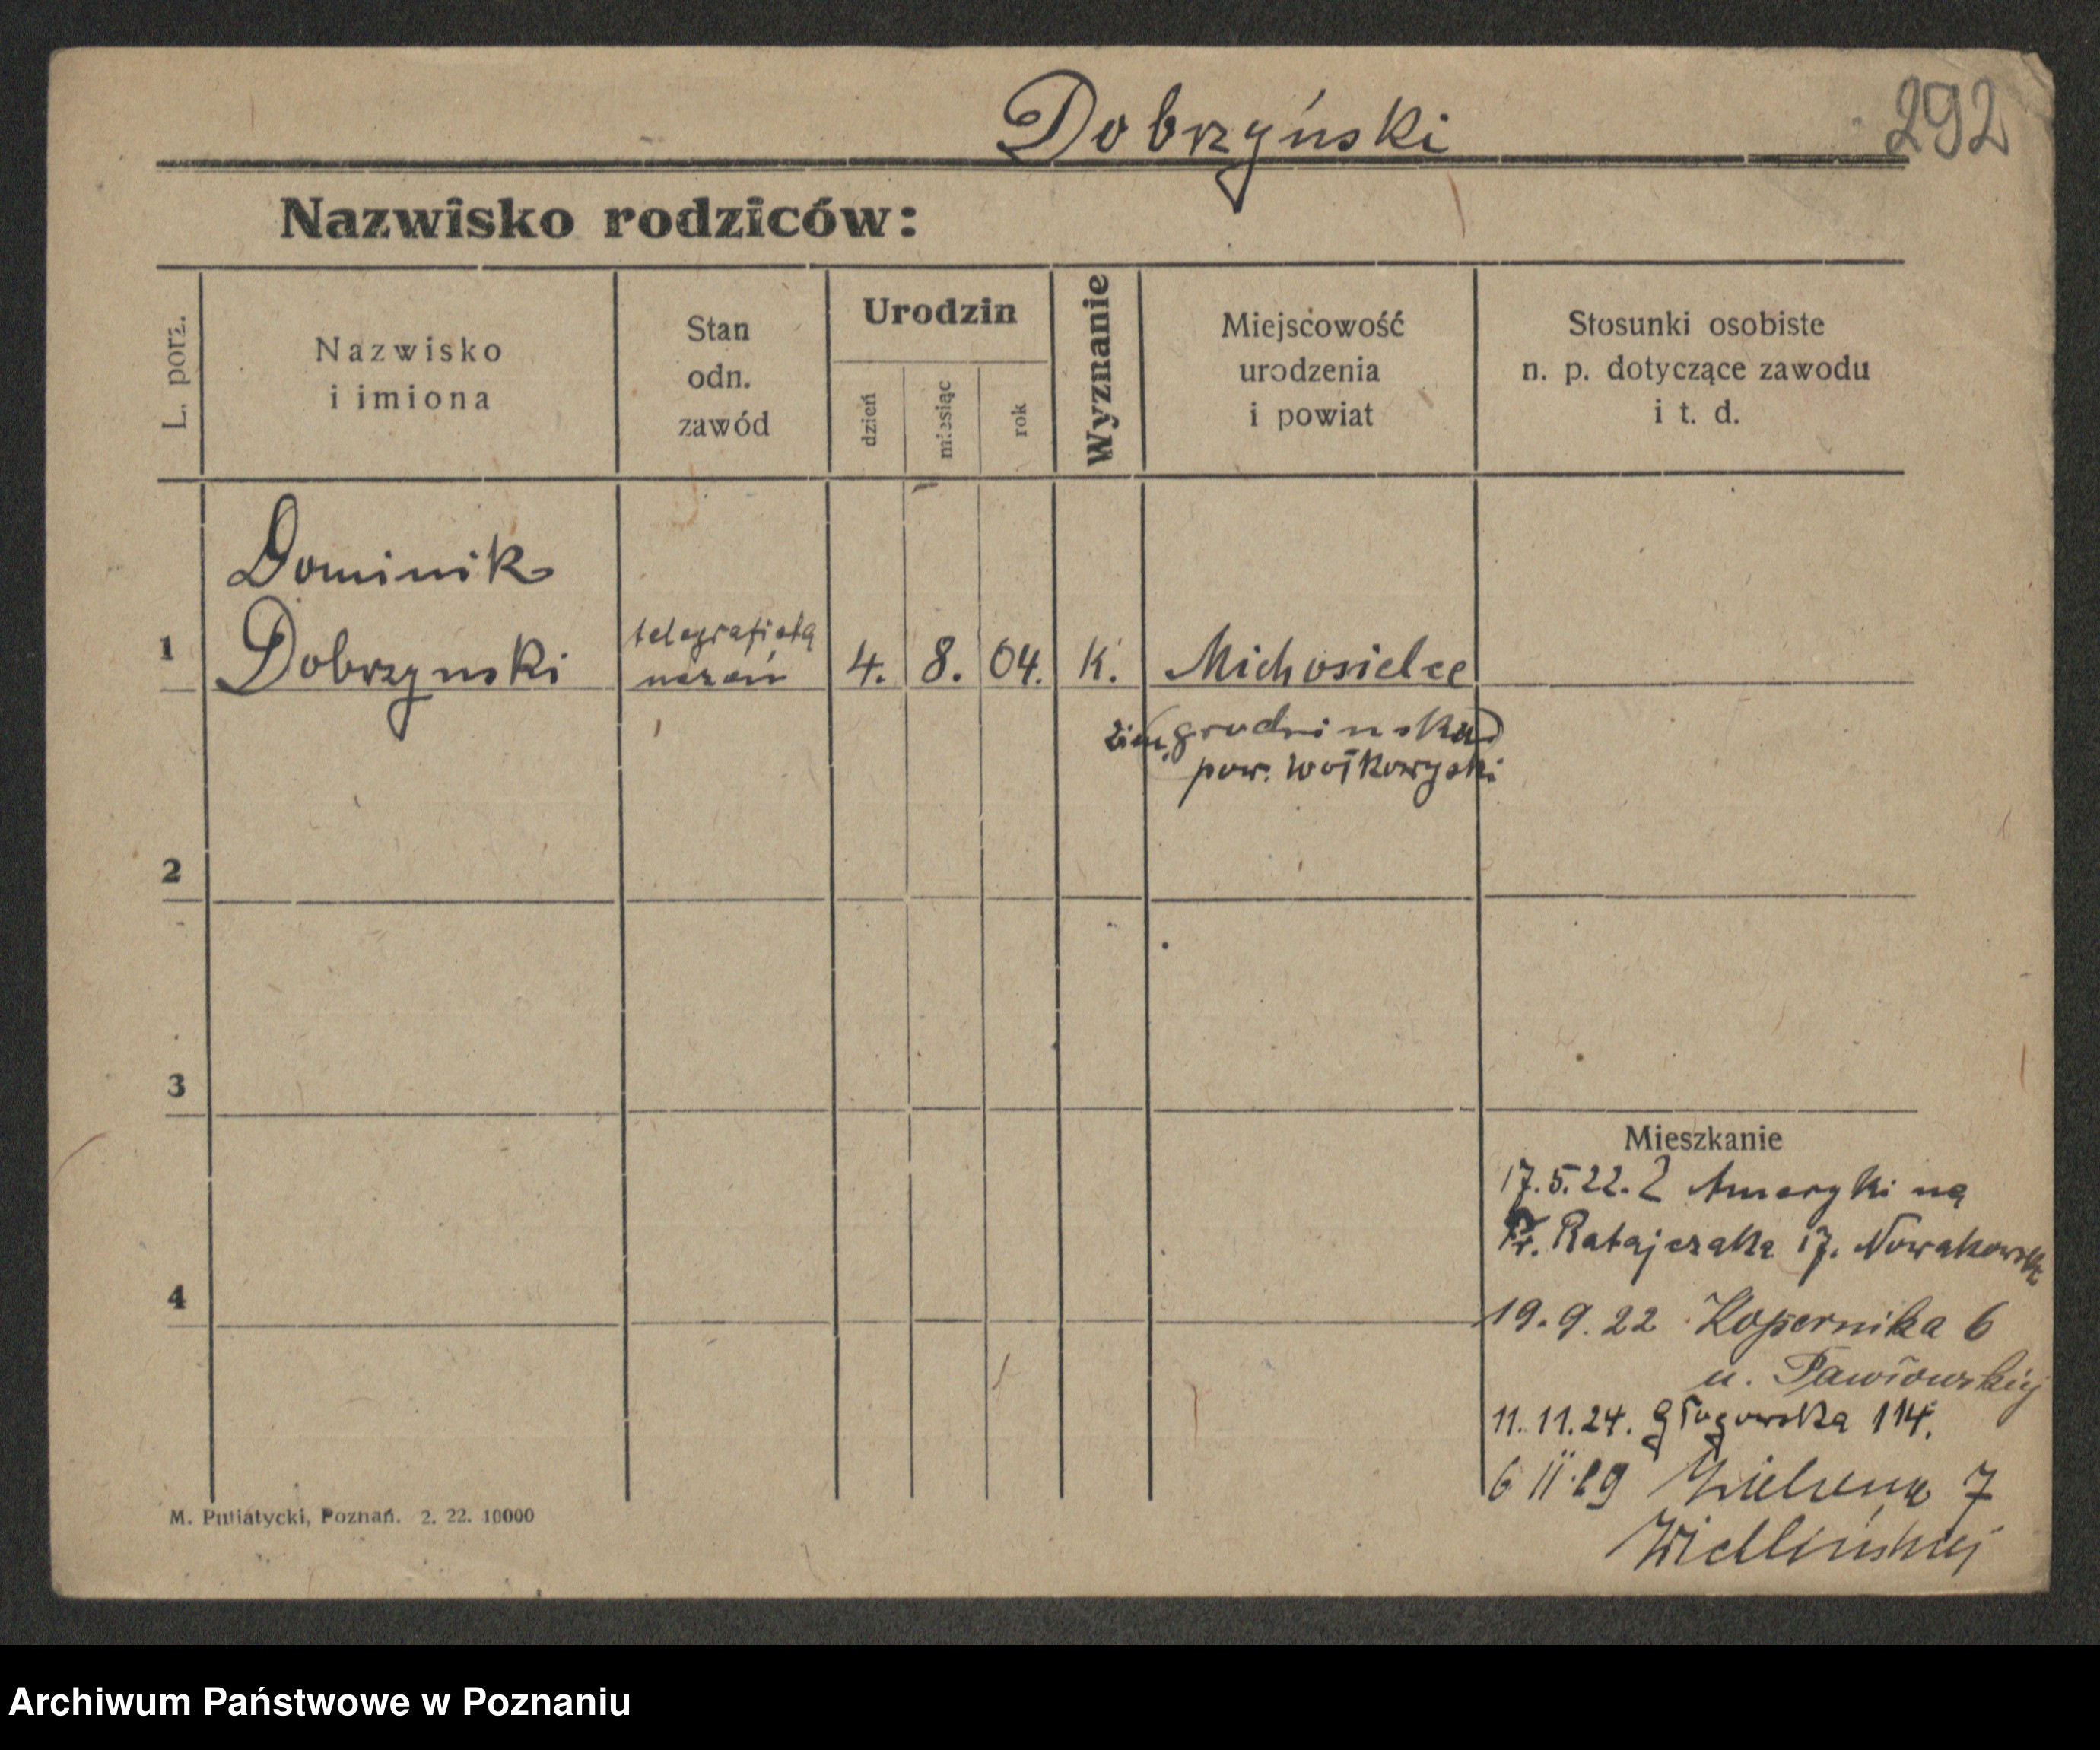 Dobrzyński
292
Nazwisko rodziców:
L. porz.
Nazwisko
i imiona
Stan
odn.
zawód
Urodzin
dzień
miesiąc
rok
Wyznanie
Miejscowość
urodzenia
i powiat
Stosunki osobiste
n. p. dotyczące zawodu
i t. d.
Dominik
1 Dobrzynski telegrafista 4. 8. 04. K. Michosielce
uczeń
ziem. grodzinska
pow. wołkowyski
2
3
4
Mieszkanie
17.5.22. Z Ameryki na
Fr. Ratajczaka 17.
19.9.22 Kopernika 6
u. Pawłowskiej
11.11.24. Głogowska 114.
6 II 29 7
M. Putiatycki, Poznań. 2. 22. 10000
Archiwum Państwowe w Poznaniu